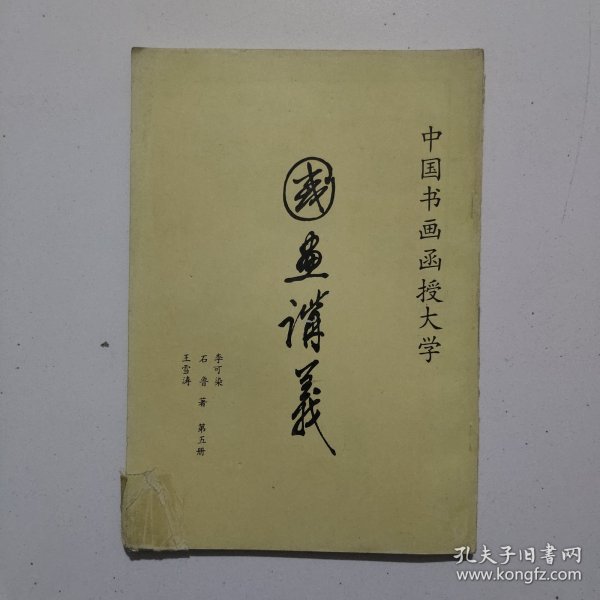 中国书画函授大学
國画講義
李可染
石鲁 著 第五册
王雪涛
孔夫子旧书网
www.kongfz.com